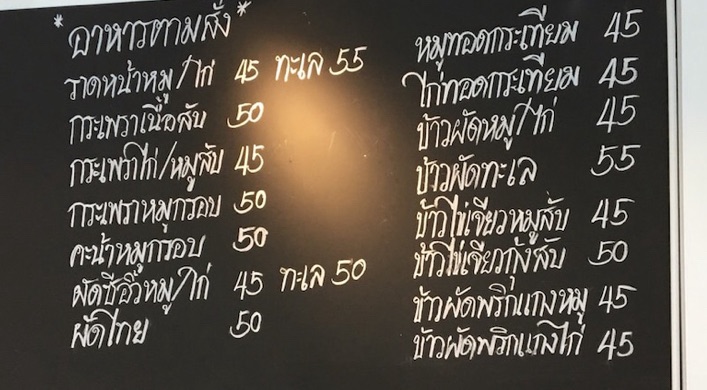 *อาหารตามสั่ง*
ราดหน้าหมู/ไก่ 45 ทะเล 55
กระเพราเนื้อสับ 50
กระเพราไก่/หมูสับ 45
กระเพราหมูกรอบ 50
คะน้าหมูกรอบ 50
ผัดซีอิ๊วหมู/ไก่ 45 ทะเล 50
ผัดไทย 50
หมูทอดกระเทียม 45
ไก่ทอดกระเทียม 45
ข้าวผัดหมู/ไก่ 45
ข้าวผัดทะเล 55
ข้าวไข่เจียวหมูสับ 45
ข้าวไข่เจียวกุ้งสับ 50
ข้าวผัดพริกแกงหมู 45
ข้าวผัดพริกแกงไก่ 45